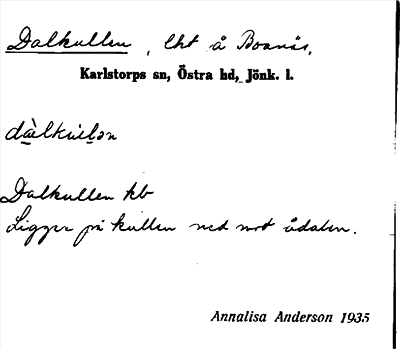 Dalkullen, lht å Boanäs,
Karlstorps sn, Östra hd, Jönk. l.
dàlkúlən
Dalkullen kb
Ligger på kullen ned mot ådalen.
Annalisa Anderson 1935